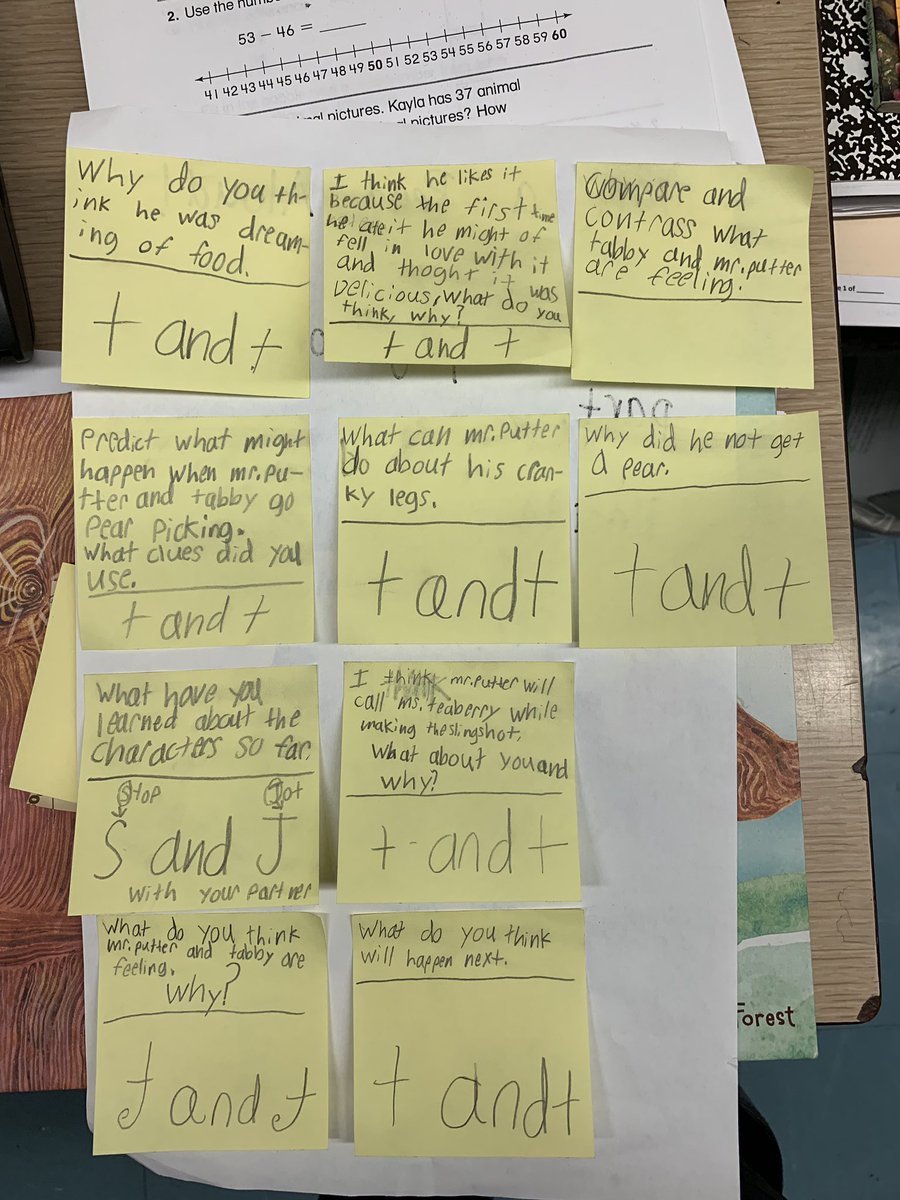 2. Use the
53 − 46 = ____
41 42 43 44 45 46 47 48 49 50 51 52 53 54 55 56 57 58 59 60
pictures. Kayla has 37 animal
pictures? How
Why do you th-
ink he was dream-
ing of food.
t and t
I think he likes it
because the first time
he ate it he might of
fell in love with it
and thoght it was
Delicious, What do you
think, why?
t and t
Compare and
contrass what
tabby and mr.putter
are feeling.
Predict what might
happen when mr.pu-
tter and tabby go
Pear Picking.
What clues did you
use.
t and t
What can mr.Putter
do about his cran-
ky legs.
t and t
Why did he not get
a pear.
t and t
What have you
learned about the
characters so far.
Stop Jot
S and J
with your Partner
I think mr.Putter will
call ms.teaberry while
making the slingshot,
What about you and
why?
t and t
What do you think
mr.putter and tabby are
feeling.
Why?
t and t
What do you think
will happen next.
t and t
Forest
1 of